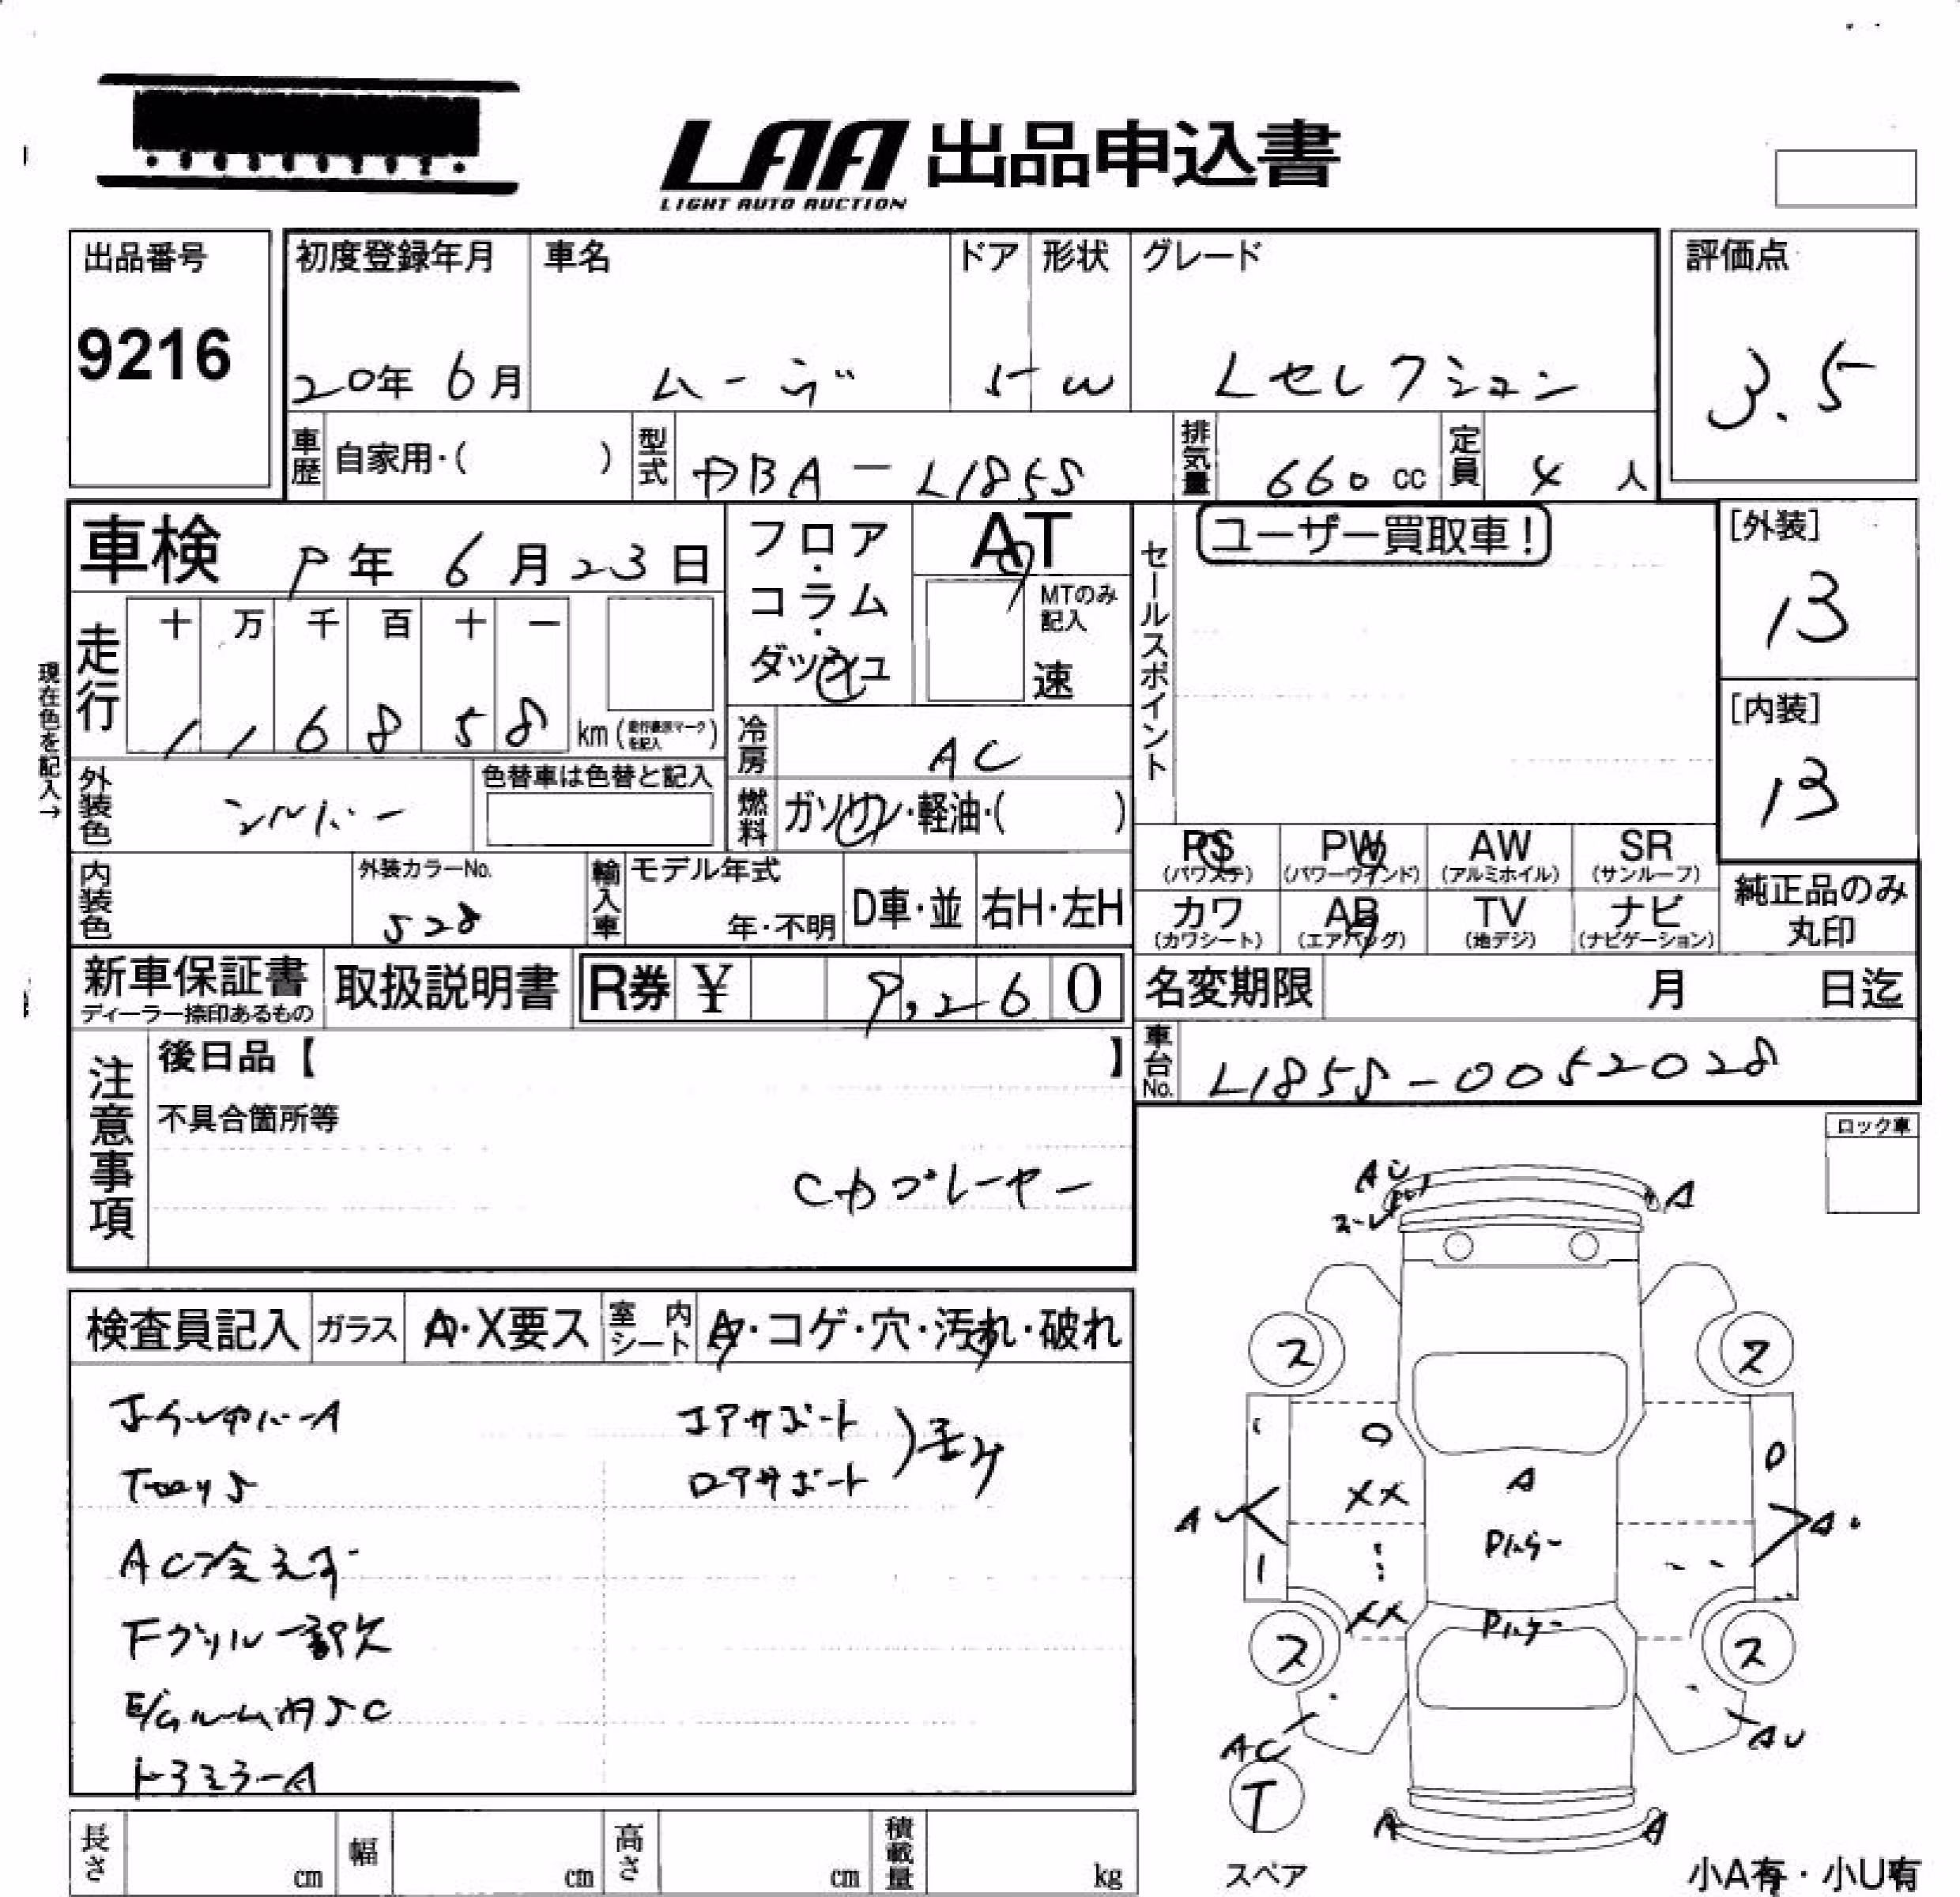 LAA 出品申込書
LIGHT AUTO AUCTION
出品番号
9216
初度登録年月
20年 6月
車名
ムーヴ
ドア
5
形状
W
グレード
Lセレクション
評価点
3.5
車歴
自家用・( )
型式
DBA-L185S
排気量
660 cc
定員
4 人
車検
9年 6月 23日
フロア・コラム・ダッシュ
AT
MTのみ記入
速
セールスポイント
ユーザー買取車!
[外装]
13
[内装]
13
現在色を記入→
走行
十 万 千 百 十 一
1 1 6 8 5 8 km
冷房
AC
燃料
ガソリン・軽油・( )
外装色
シルバー
色替車は色替と記入
内装色
外装カラーNo.
S28
輸入車
モデル年式
年・不明
D車・並
右H・左H
PS (パワステ)
PW (パワーウインド)
AW (アルミホイル)
SR (サンルーフ)
カワ (カワシート)
AB (エアバッグ)
TV (地デジ)
ナビ (ナビゲーション)
純正品のみ
丸印
新車保証書
ディーラー捺印あるもの
取扱説明書
R券 ¥ 9,260
名変期限
月 日迄
車台No.
L185S-0052028
注意事項
後日品【 】
不具合箇所等
CDプレーヤー
ロック車
検査員記入
ガラス
A・X要ス
室内シート
A・コゲ・穴・汚れ・破れ
コアサポート
ロアサポート
AC冷えず
Fグリル一部欠
E/Gルーム内SC
トランクA
AU
A
ス
ス
A
XX
XX
ス
ス
AC
AU
T
A
A
スペア
小A有・小U有
長さ
cm
幅
cm
高さ
cm
積載量
kg